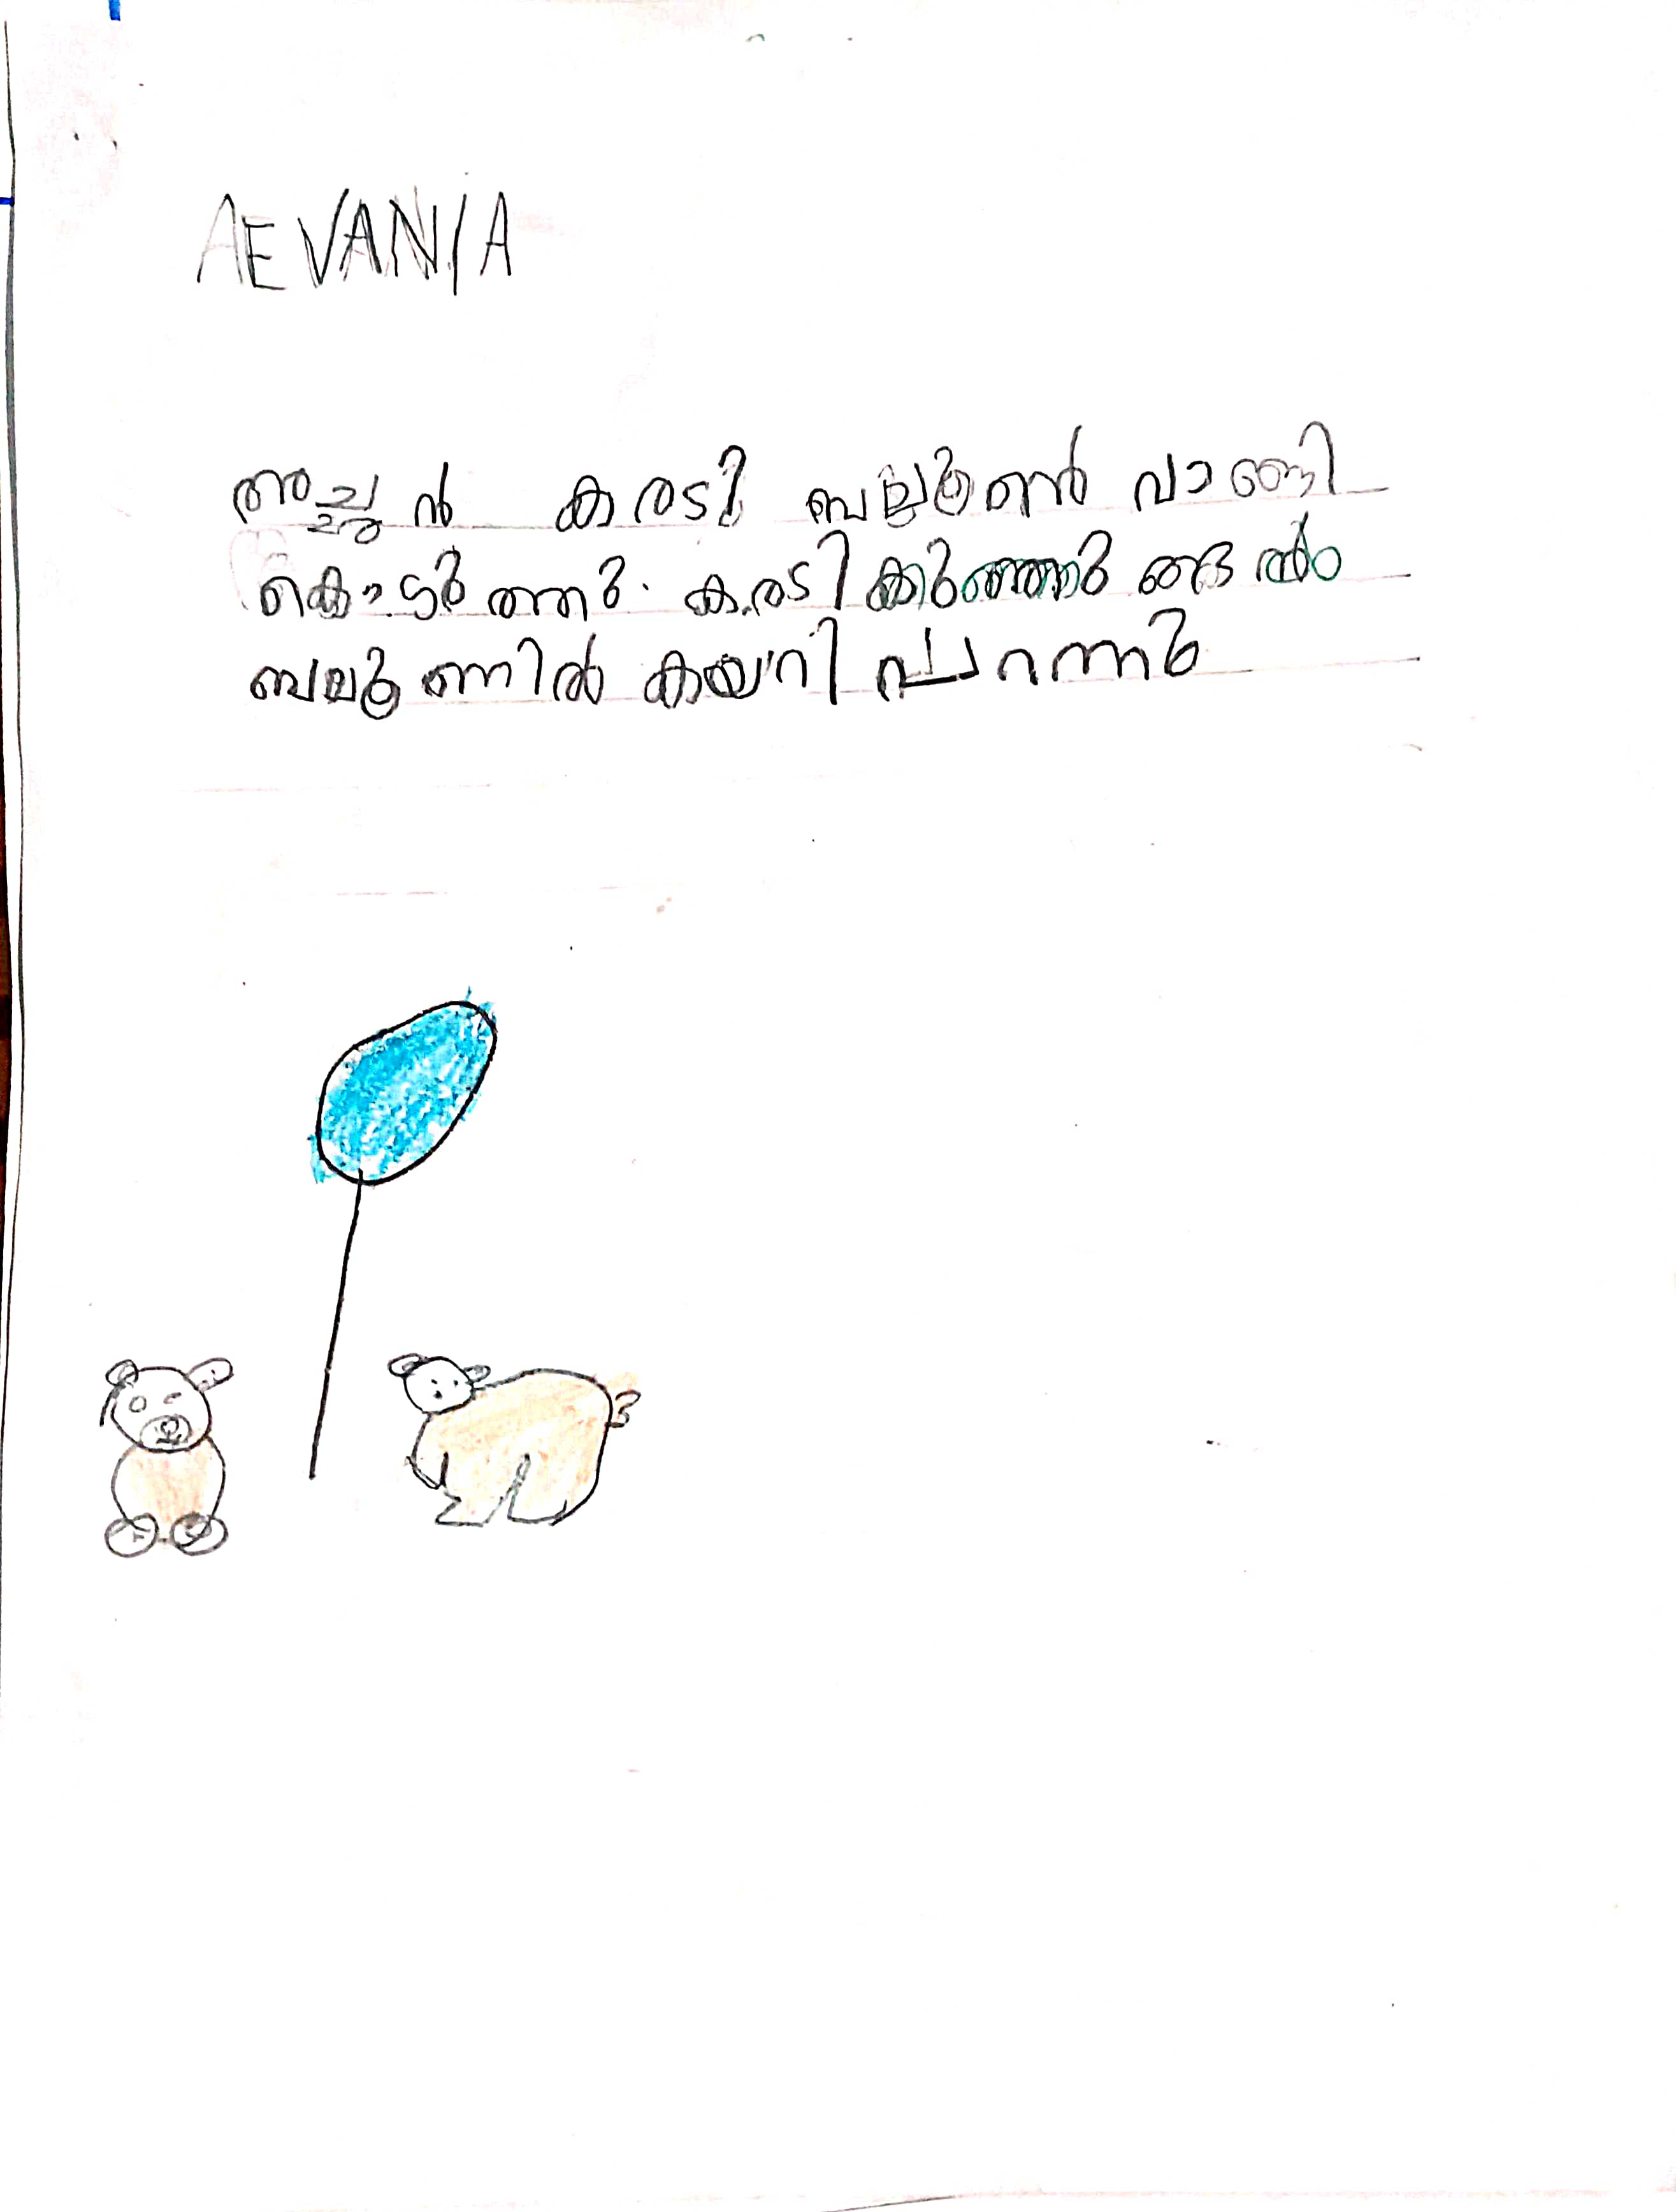 AEVANIA
അച്ഛൻ കരടി ബലൂൺ വാങ്ങി
കൊടുത്തു. കരടി കുഞ്ഞുങ്ങൾ
ബലൂണിൽ കയറി പറന്നു